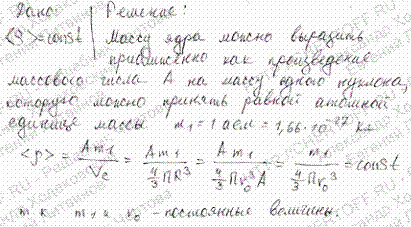 Дано | Решение:
<ρ>=const | Массу ядра можно выразить
приближенно как произведение
массового числа A на массу одного нуклона,
которую можно принять равной атомной
единице массы m₁ = 1 аем = 1,66·10⁻²⁷ кг
<ρ> = Am₁/Vс = Am₁/(4/3 ПR³) = Am₁/(4/3 Пr₀³A) = m₁/(4/3 Пr₀³) = const
т.к. m₁ и r₀ - постоянные величины.